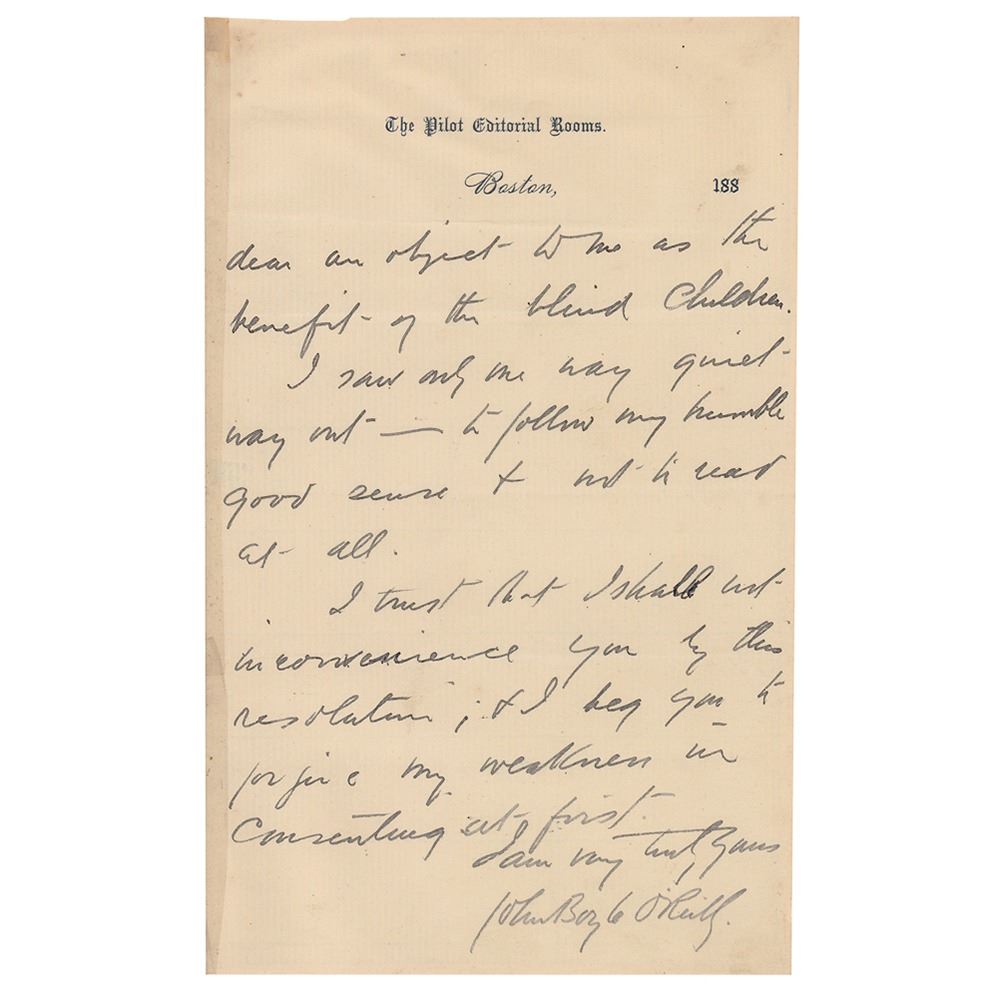 The Pilot Editorial Rooms.
Boston, 188
dear an object to me as the
benefit of the blind children.
I saw only one way quiet
way out — to follow my humble
good sense & not to read
at all.
I trust that I shall not
inconvenience you by this
resolution; & I beg you to
forgive my weakness in
consenting at first.
I am very truly Yours
John Boyle O'Reilly.